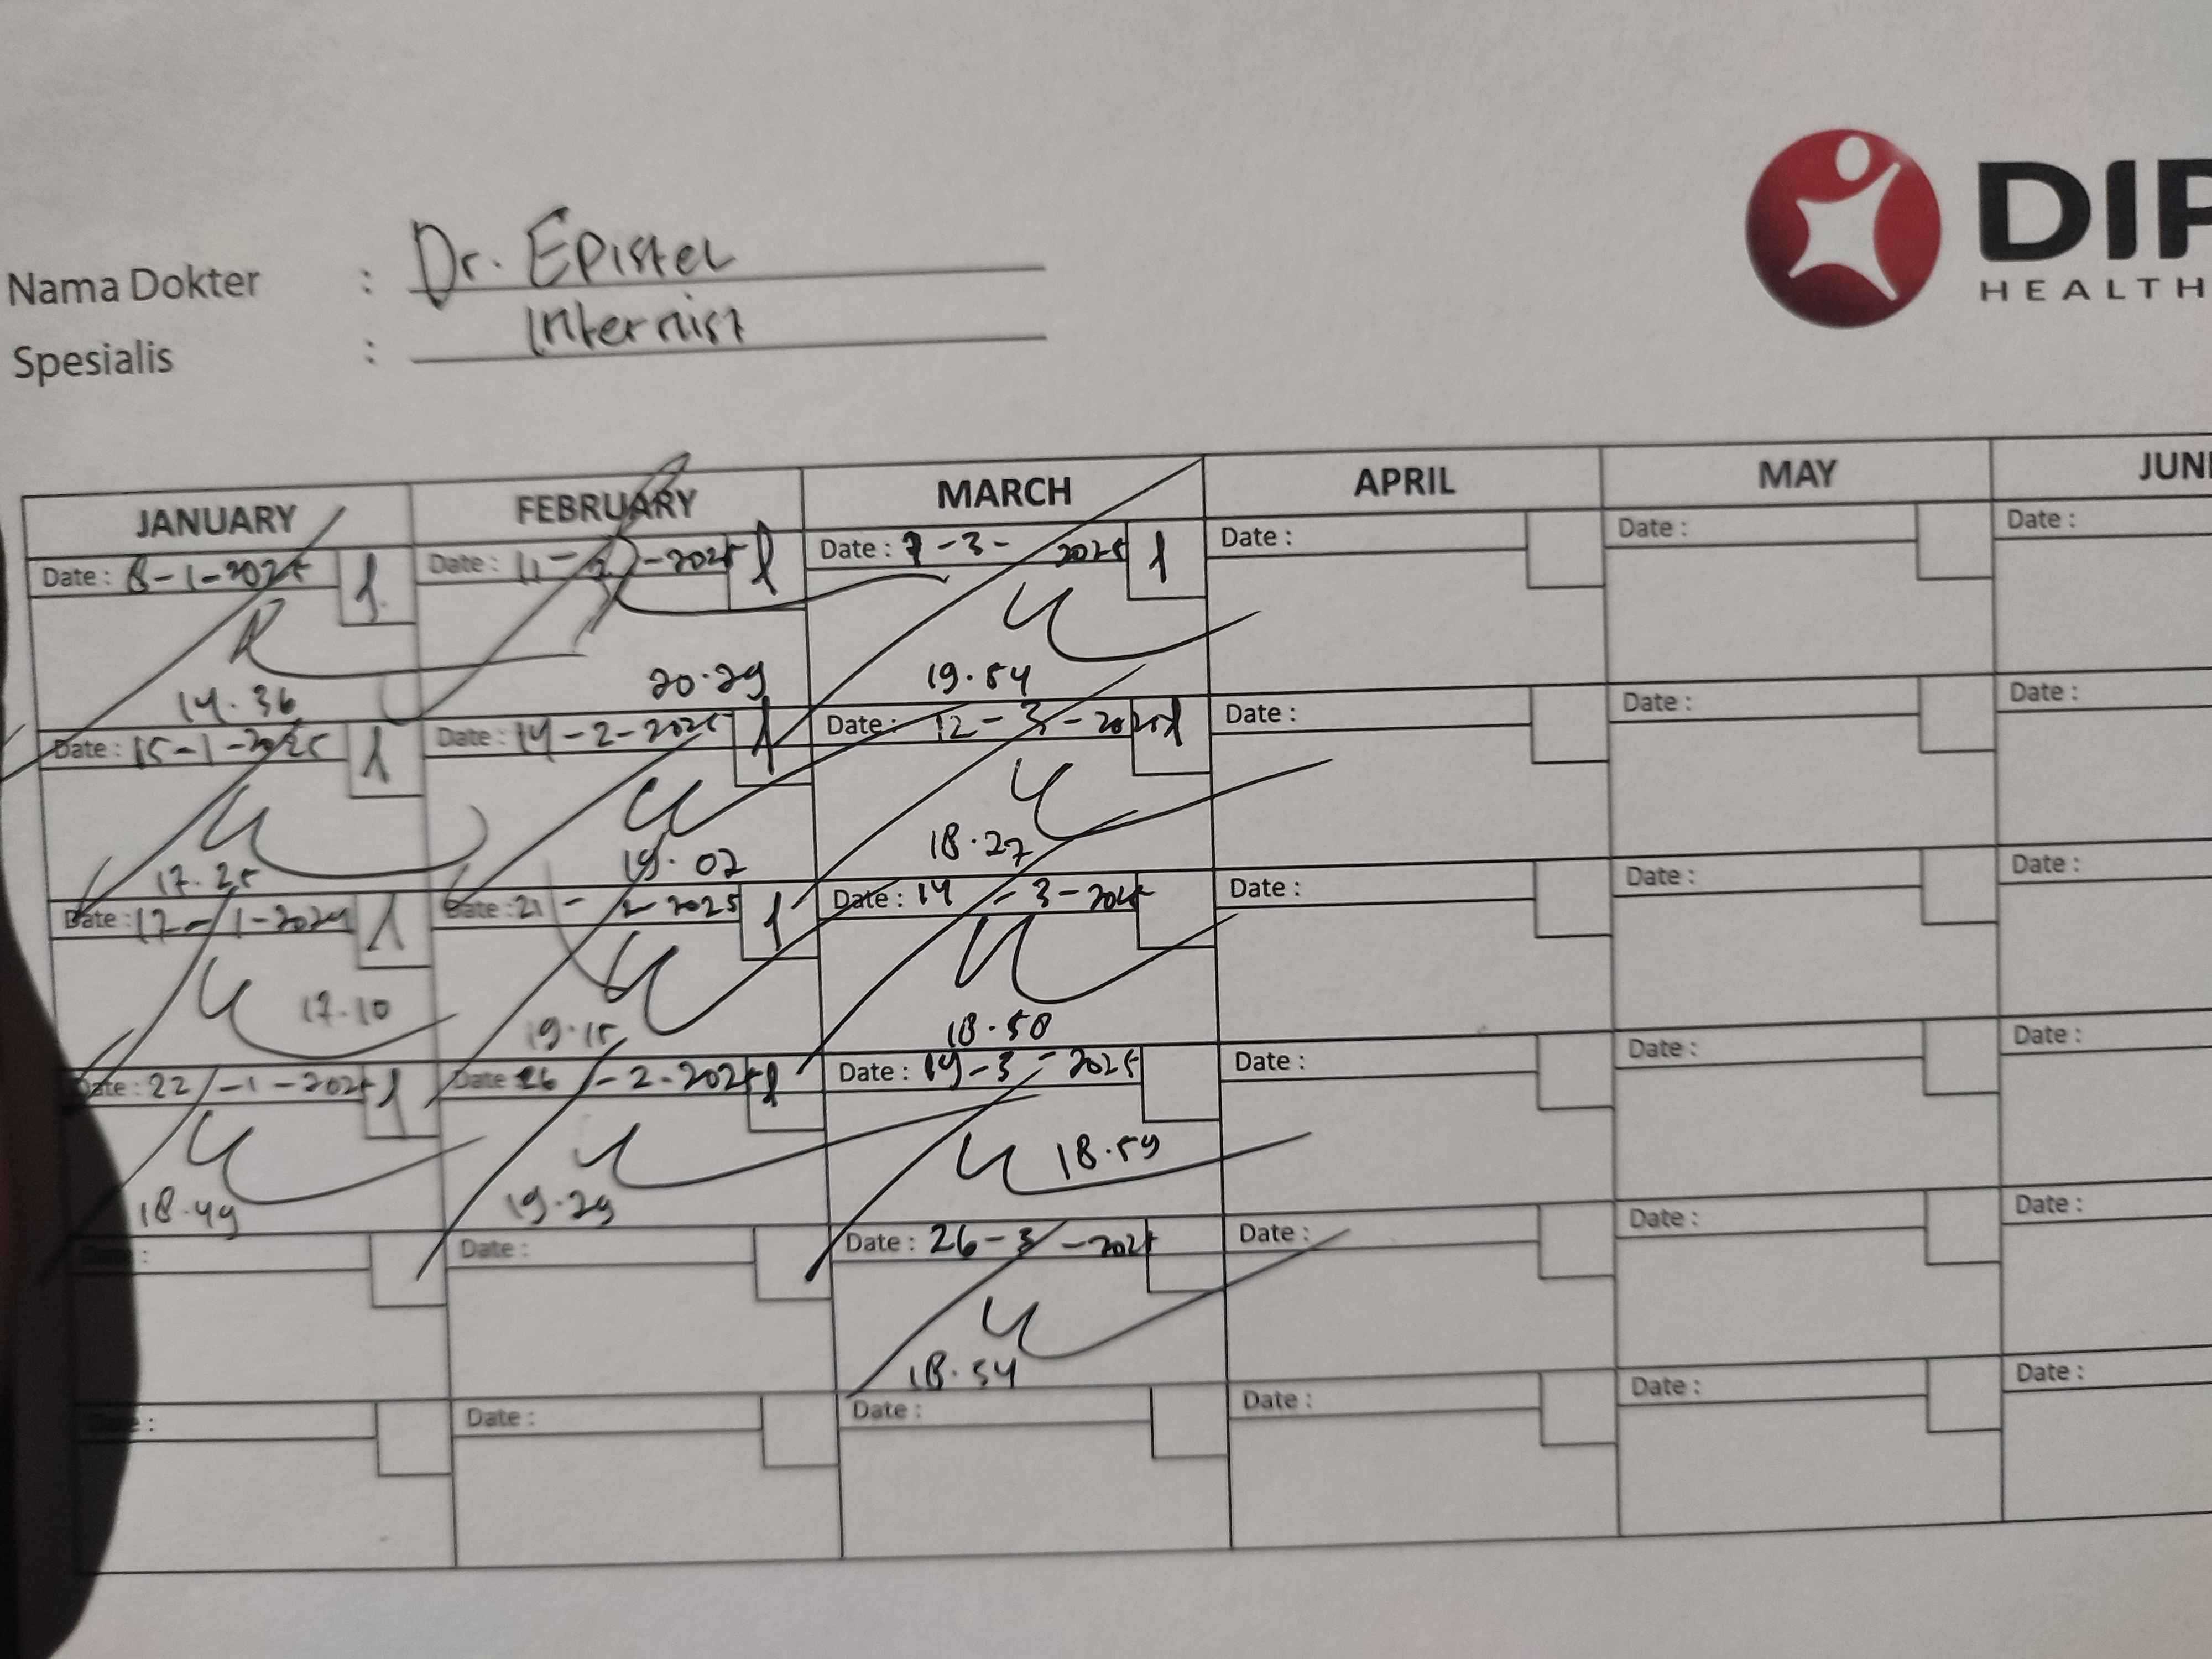 DIP
HEALTH
Nama Dokter : Dr. Epistel
Spesialis : Internist
JANUARY FEBRUARY MARCH APRIL MAY JUN
Date : 8-1-2025 1 Date : 11-2-2025 1 Date : 7-3-2025 1 Date : Date : Date :
14.36 20.29 19.54
Date : 15-1-2025 1 Date : 14-2-2025 1 Date : 12-3-2025 1 Date : Date : Date :
17.25 19.02 18.27
Date : 17-1-2024 1 Date : 21-2-2025 1 Date : 14-3-2025 Date : Date : Date :
17.10 19.15 18.50
Date : 22-1-2025 1 Date 26-2-2025 1 Date : 19-3-2025 Date : Date : Date :
18.49 19.29 18.59
Date : Date : Date : 26-3-2025 Date : Date : Date :
18.54
Date : Date : Date : Date : Date : Date :